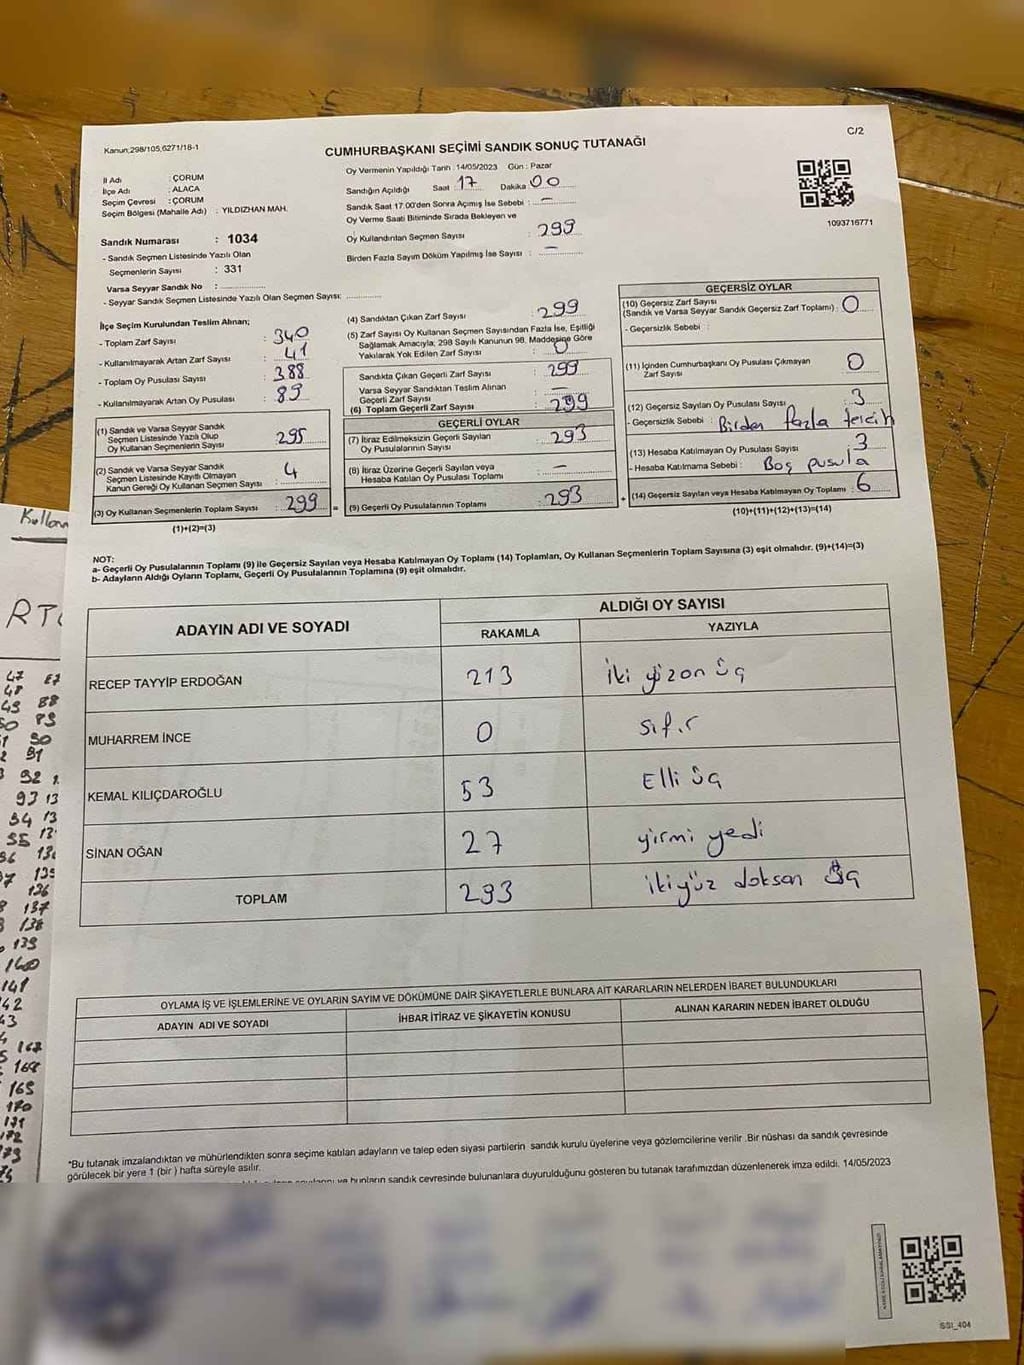 C/2
Kanun;298/105,6271/18-1
CUMHURBAŞKANI SEÇİMİ SANDIK SONUÇ TUTANAĞI
İl Adı : ÇORUM
İlçe Adı : ALACA
Seçim Çevresi : ÇORUM
Seçim Bölgesi (Mahalle Adı) : YILDIZHAN MAH.
Sandık Numarası : 1034
- Sandık Seçmen Listesinde Yazılı Olan
Seçmenlerin Sayısı : 331
Varsa Seyyar Sandık No :
- Seyyar Sandık Seçmen Listesinde Yazılı Olan Seçmen Sayısı:
Oy Vermenin Yapıldığı Tarih : 14/05/2023 Gün : Pazar
Sandığın Açıldığı Saat 17 Dakika 00
Sandık Saat 17.00'den Sonra Açılmış İse Sebebi : —
Oy Verme Saati Bitiminde Sırada Bekleyen ve
Oy Kullandırılan Seçmen Sayısı : 299
Birden Fazla Sayım Döküm Yapılmış İse Sayısı : —
1093716771
İlçe Seçim Kurulundan Teslim Alınan;
- Toplam Zarf Sayısı : 340
- Kullanılmayarak Artan Zarf Sayısı : 41
- Toplam Oy Pusulası Sayısı : 388
- Kullanılmayarak Artan Oy Pusulası : 89
(1) Sandık ve Varsa Seyyar Sandık
Seçmen Listesinde Yazılı Olup
Oy Kullanan Seçmenlerin Sayısı : 295
(2) Sandık ve Varsa Seyyar Sandık
Seçmen Listesinde Kayıtlı Olmayan
Kanun Gereği Oy Kullanan Seçmen Sayısı : 4
(3) Oy Kullanan Seçmenlerin Toplam Sayısı : 299
(1)+(2)=(3)
(4) Sandıktan Çıkan Zarf Sayısı : 299
(5) Zarf Sayısı Oy Kullanan Seçmen Sayısından Fazla İse, Eşitliği
Sağlamak Amacıyla; 298 Sayılı Kanunun 98. Maddesine Göre
Yakılarak Yok Edilen Zarf Sayısı : 0
Sandıkta Çıkan Geçerli Zarf Sayısı : 299
Varsa Seyyar Sandıktan Teslim Alınan
Geçerli Zarf Sayısı : —
(6) Toplam Geçerli Zarf Sayısı : 299
GEÇERLİ OYLAR
(7) İtiraz Edilmeksizin Geçerli Sayılan
Oy Pusulalarının Sayısı : 293
(8) İtiraz Üzerine Geçerli Sayılan veya
Hesaba Katılan Oy Pusulası Toplamı : —
= (9) Geçerli Oy Pusulalarının Toplamı : 293
GEÇERSİZ OYLAR
(10) Geçersiz Zarf Sayısı
(Sandık ve Varsa Seyyar Sandık Geçersiz Zarf Toplamı) : 0
- Geçersizlik Sebebi :
(11) İçinden Cumhurbaşkanı Oy Pusulası Çıkmayan
Zarf Sayısı : 0
(12) Geçersiz Sayılan Oy Pusulası Sayısı : 3
- Geçersizlik Sebebi : Birden fazla tercih
(13) Hesaba Katılmayan Oy Pusulası Sayısı : 3
- Hesaba Katılmama Sebebi : Boş pusula
+ (14) Geçersiz Sayılan veya Hesaba Katılmayan Oy Toplamı : 6
(10)+(11)+(12)+(13)=(14)
NOT:
a- Geçerli Oy Pusulalarının Toplamı (9) ile Geçersiz Sayılan veya Hesaba Katılmayan Oy Toplamı (14) Toplamları, Oy Kullanan Seçmenlerin Toplam Sayısına (3) eşit olmalıdır. (9)+(14)=(3)
b- Adayların Aldığı Oyların Toplamı, Geçerli Oy Pusulalarının Toplamına (9) eşit olmalıdır.
ADAYIN ADI VE SOYADI
ALDIĞI OY SAYISI
RAKAMLA YAZIYLA
RECEP TAYYİP ERDOĞAN 213 iki yüz on üç
MUHARREM İNCE 0 sıfır
KEMAL KILIÇDAROĞLU 53 Elli üç
SİNAN OĞAN 27 yirmi yedi
TOPLAM 293 ikiyüz doksan üç
OYLAMA İŞ VE İŞLEMLERİNE VE OYLARIN SAYIM VE DÖKÜMÜNE DAİR ŞİKAYETLERLE BUNLARA AİT KARARLARIN NELERDEN İBARET BULUNDUKLARI
ADAYIN ADI VE SOYADI İHBAR İTİRAZ VE ŞİKAYETİN KONUSU ALINAN KARARIN NEDEN İBARET OLDUĞU
*Bu tutanak imzalandıktan ve mühürlendikten sonra seçime katılan adayların ve talep eden siyasi partilerin sandık kurulu üyelerine veya gözlemcilerine verilir .Bir nüshası da sandık çevresinde
görülecek bir yere 1 (bir ) hafta süreyle asılır.
ve bunların sandık çevresinde bulunanlara duyurulduğunu gösteren bu tutanak tarafımızdan düzenlenerek imza edildi. 14/05/2023
SSI_404
47 87
48 88
49 89
90
91
92
93 13
94 13
95
135
136
137
138
139
140
141
167
168
169
170
171